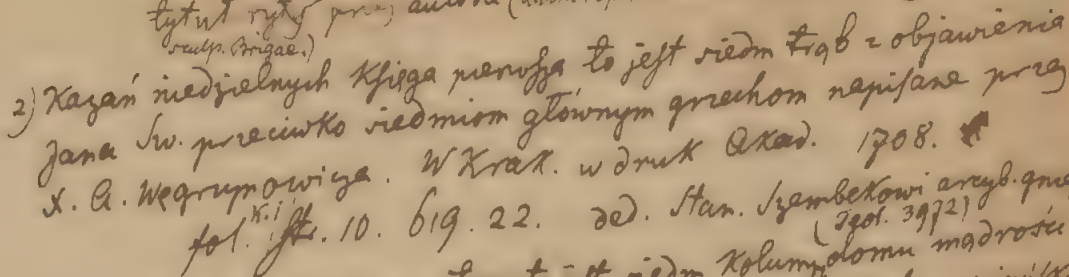 tytuł ryty przez autora
sculp. Brigae.)
2) Kazań niedzielnych Księga pierwsza to jest siedm trąb z objawienia
Jana Św. przeciwko siedmiom głównym grzechom napisane przez
X. A. Węgrzynowicza. W Krak. w druk Akad. 1708.
fol. k. i str. 10. 619. 22. ded. Stan. Szembekowi arcyb. gnie
(Jgoł. 3972)
jest siedm Kolumn domu mądrości